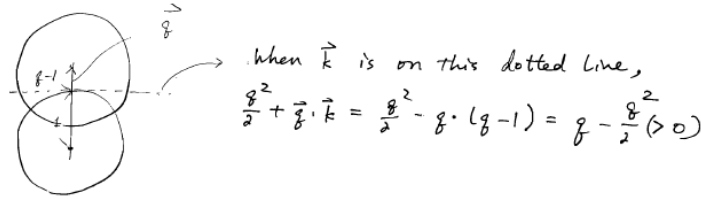 q⃗
q-1
1
When k⃗ is on this dotted line,
q²/2 + q⃗·k⃗ = q²/2 - q·(q-1) = q - q²/2 (>0)